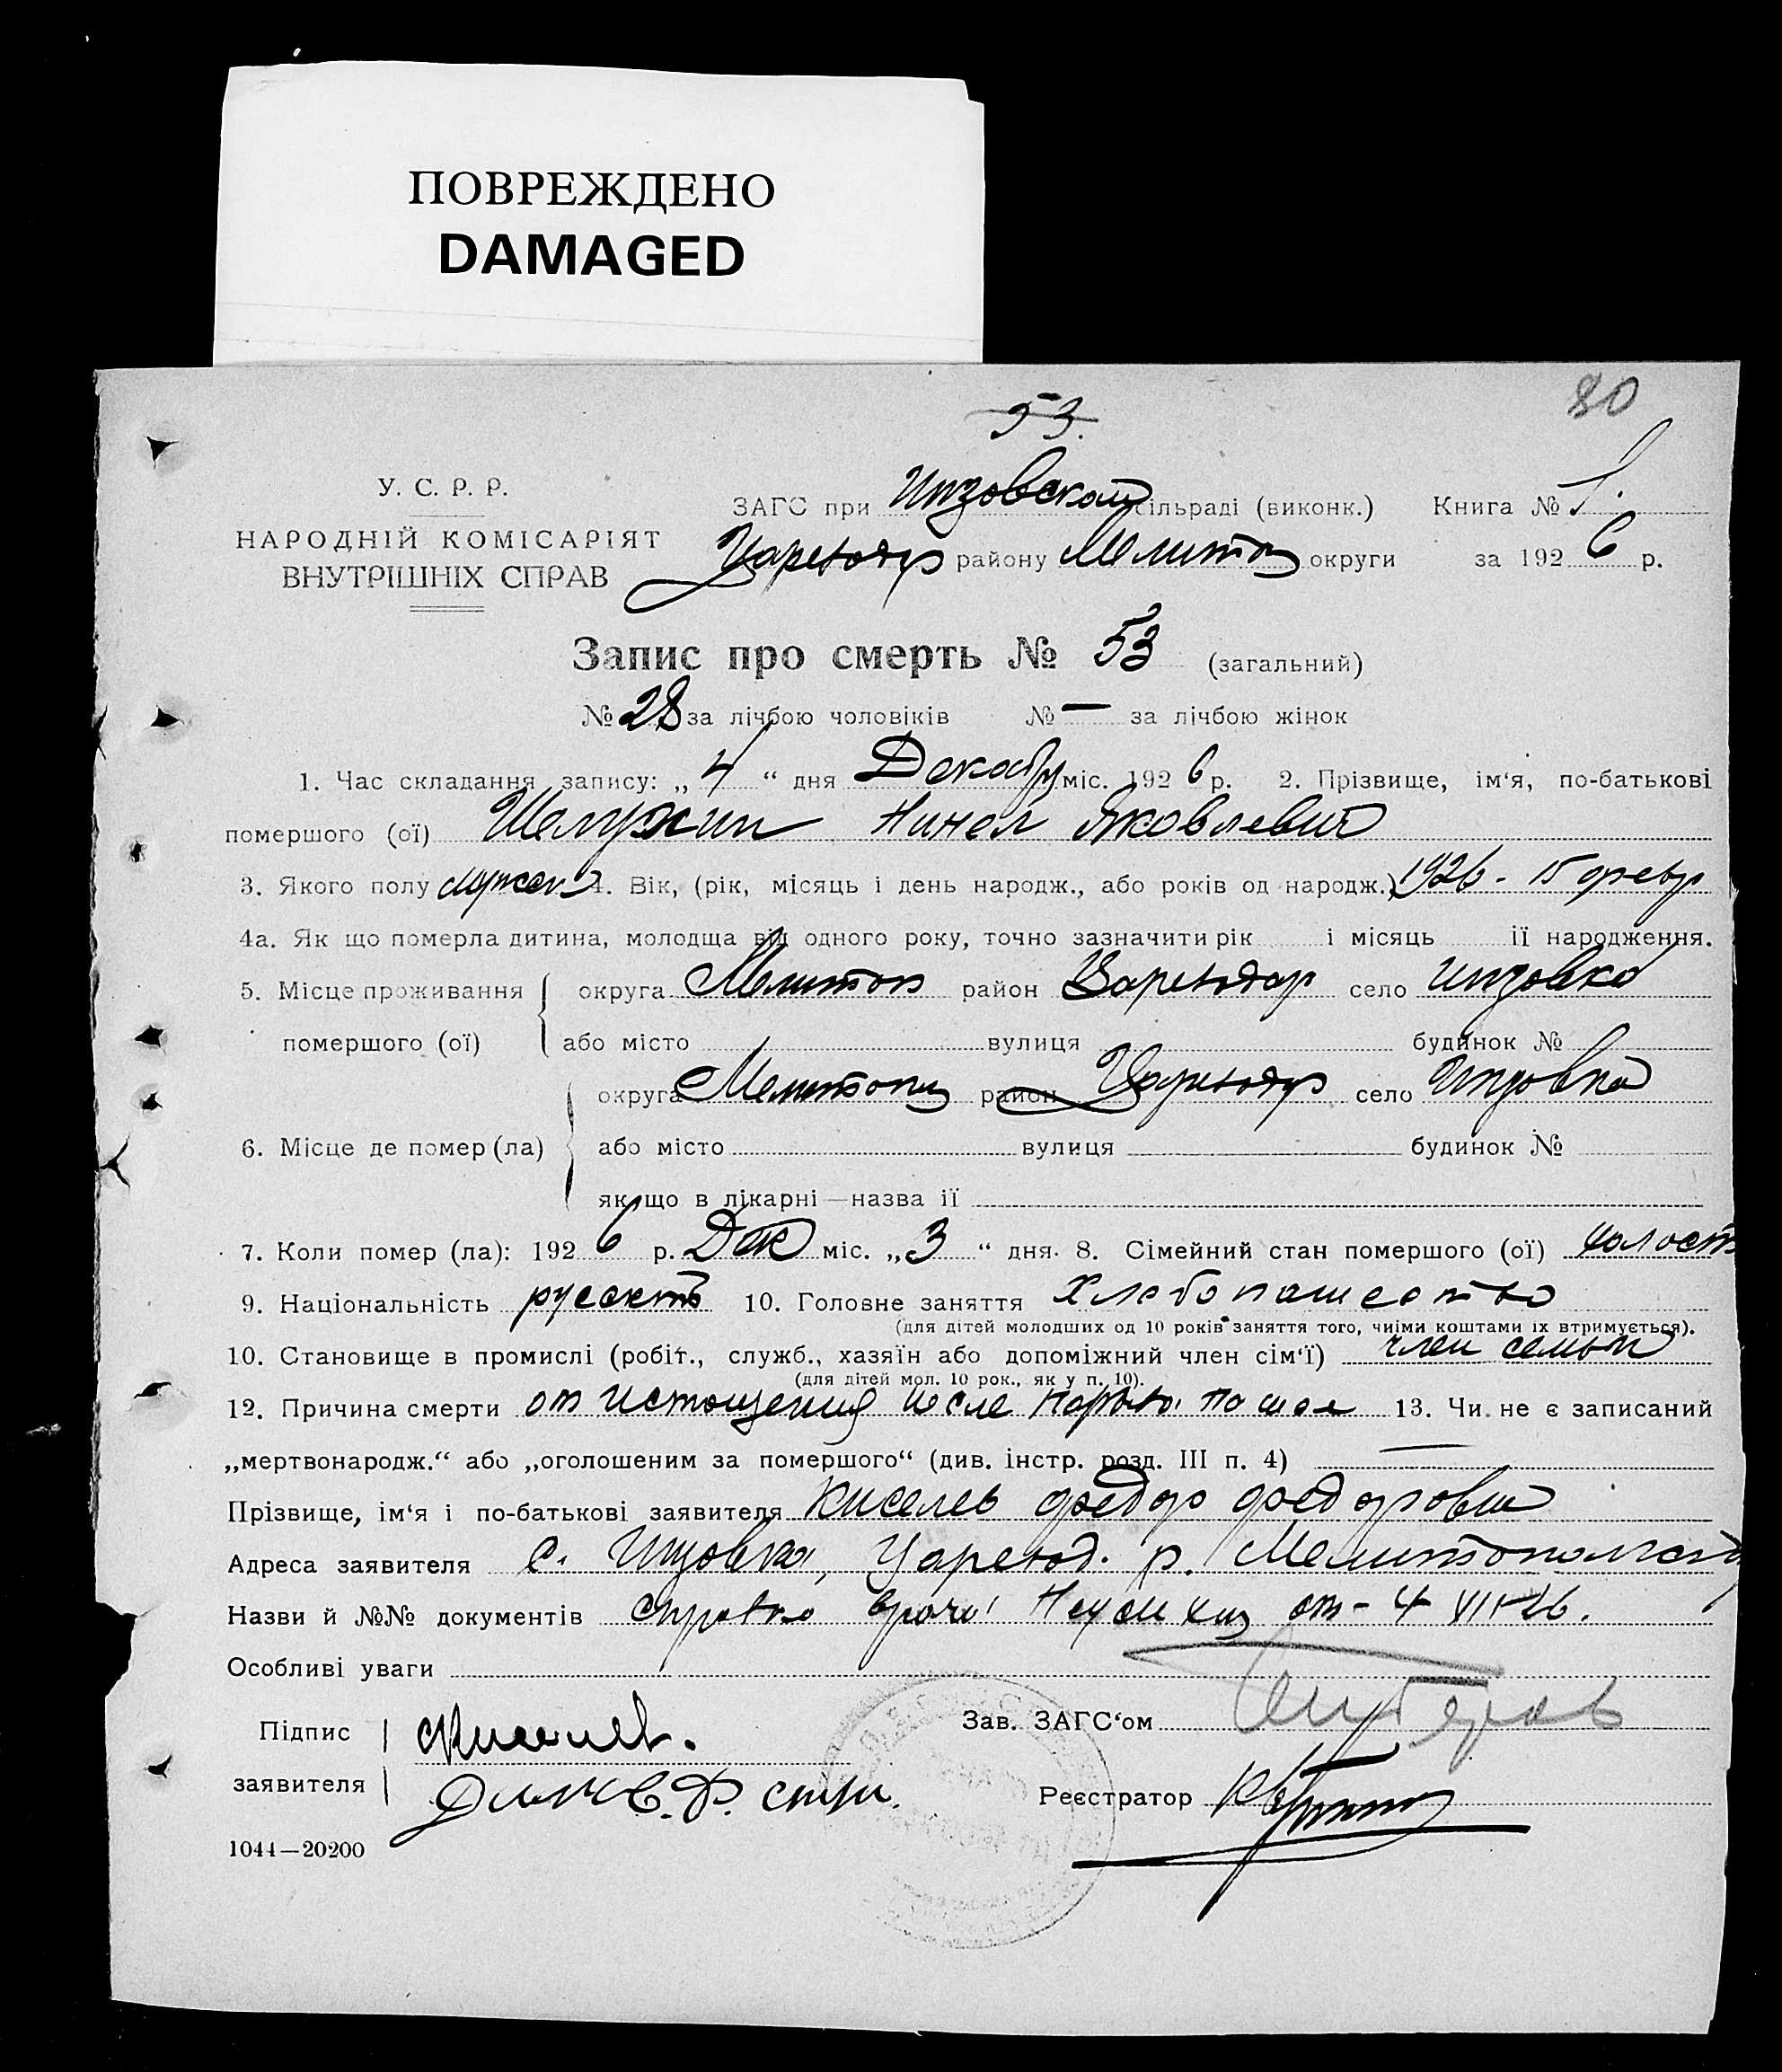 ПОВРЕЖДЕНО
DAMAGED
53.
80
У. С. Р. Р.
НАРОДНІЙ КОМІСАРІЯТ
ВНУТРІШНІХ СПРАВ
ЗАГС при сільраді (виконк.) Книга № 1.
району Мелитоп округи за 1926 р.
Запис про смерть № 53 (загальний)
№ 28 за лічбою чоловіків № — за лічбою жінок
1. Час складання запису: „4“ дня Декабр міс. 1926 р. 2. Прізвище, ім‘я, по-батькові
помершого (ої) Яковлевич
3. Якого полу мужск 4. Вік, (рік, місяць і день народж., або років од народж.) 1926 - 15 февр
4а. Як що померла дитина, молодща від одного року, точно зазначити рік і місяць ії народження.
5. Місце проживання округа Мелитоп район село
помершого (ої) або місто вулиця будинок №
округа Мелитоп район село
6. Місце де помер (ла) або місто вулиця будинок №
як що в лікарні—назва ії
7. Коли помер (ла): 1926 р. Дек міс. „3“ дня. 8. Сімейний стан помершого (ої) холост
9. Національність русск 10. Головне заняття Хлебопашество
(для дітей молодших од 10 років заняття того, чиїми коштами іх втримується).
10. Становище в промислі (робіт., служб., хазяїн або допоміжний член сім‘ї) член семьи
(для дітей мол. 10 рок., як у п. 10).
12. Причина смерти от истощения после 13. Чи не є записаний
„мертвонародж.“ або „оголошеним за помершого“ (див. інстр. розд. III п. 4) —
Прізвище, ім‘я і по-батькові заявителя Киселев Федор Федорович
Адреса заявителя с. р. Мелитопольск
Назви й №№ документів справка врача от - 4
Особливі уваги
Підпис Зав. ЗАГС‘ом
заявителя Реєстратор
1044—20200